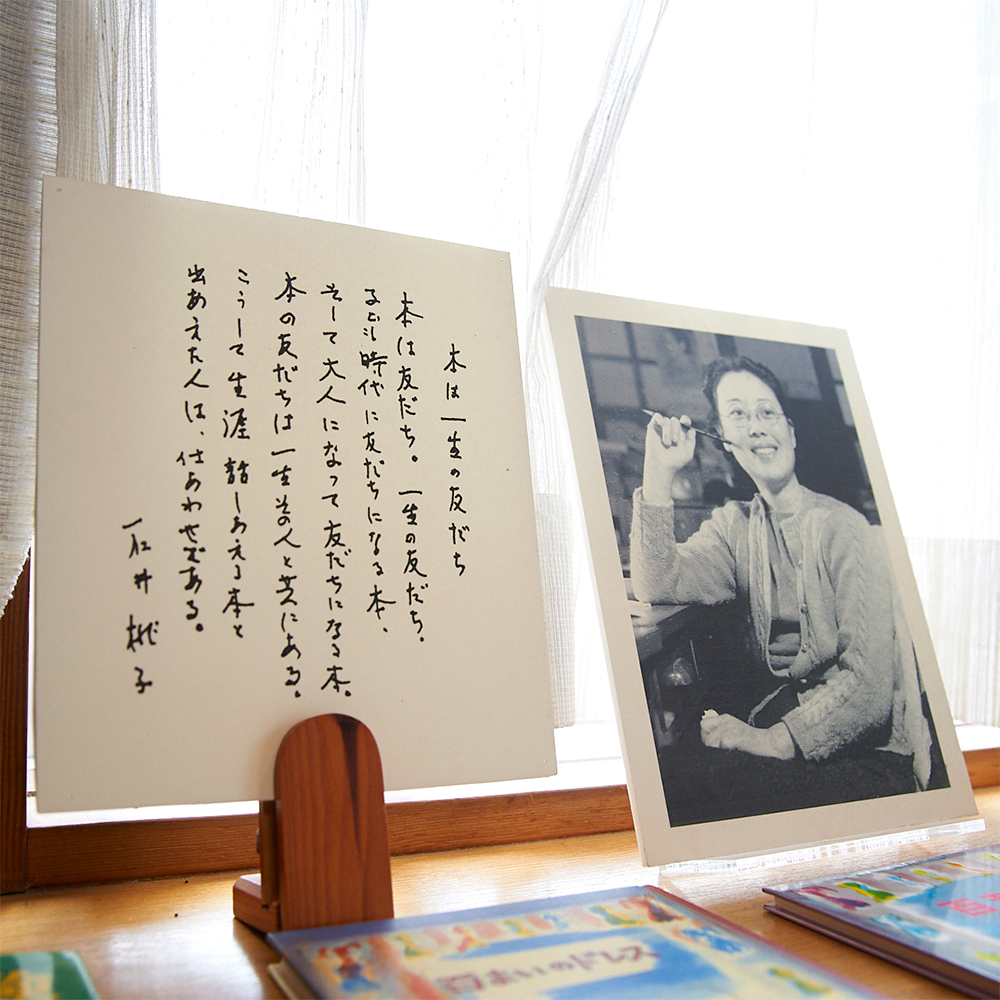 本は一生の友だち
本は友だち。一生の友だち。
子ども時代に友だちになる本、
そして大人になって友だちになる本。
本の友だちは一生その人と共にある。
こうして生涯話しあえる本と
出あえた人は、仕あわせである。
石井桃子
百まいのドレス
百